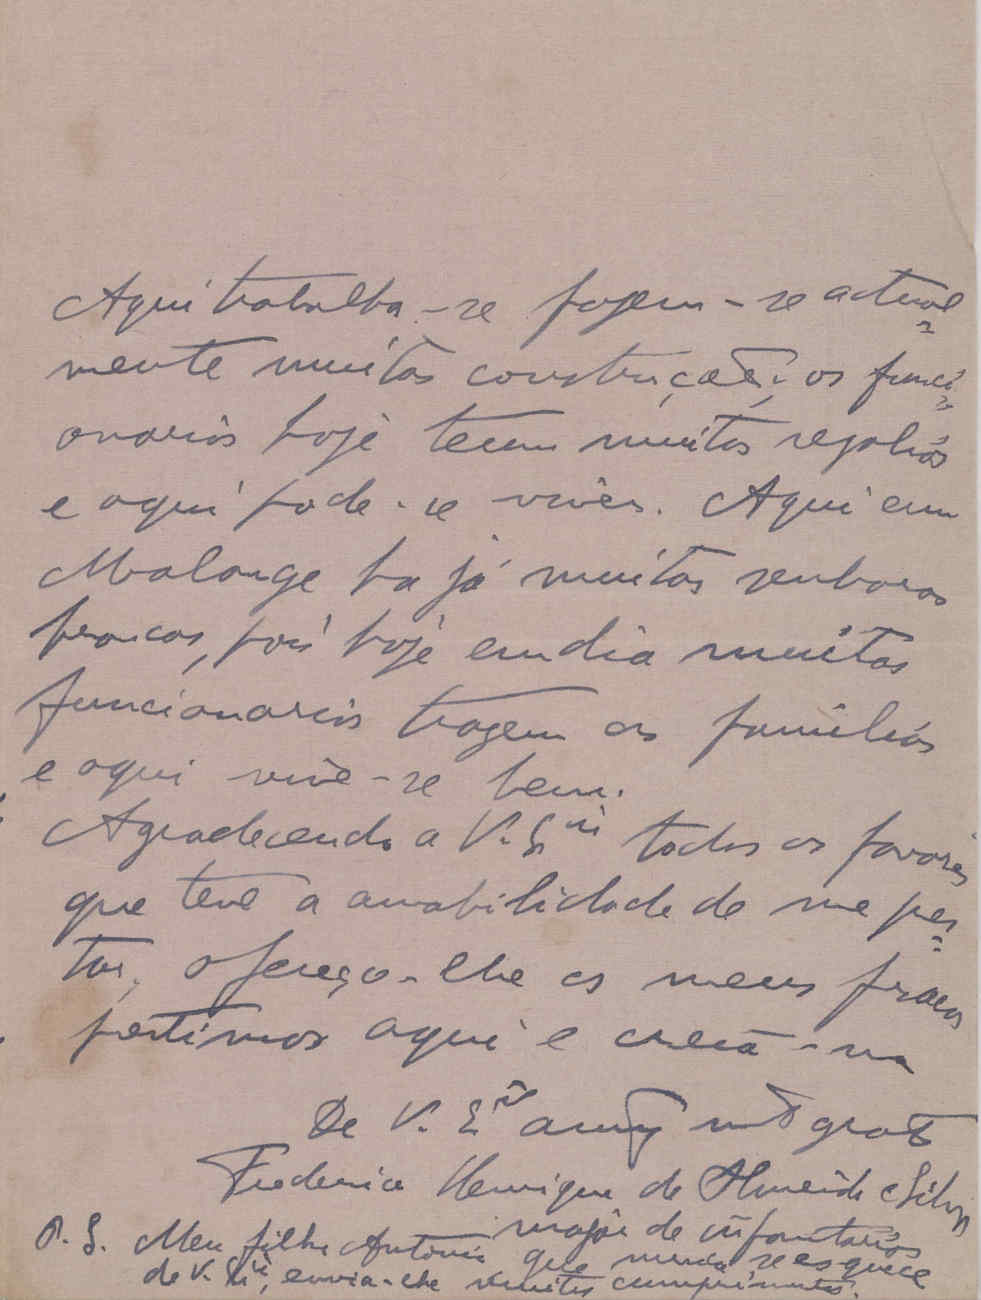 Aqui trabalha-se fazem-se actual=
mente muitas construções; os funci=
onarios hoje teem muitas regalias
e aqui pode-se viver. Aqui em
Malange ha já muitas senhoras
brancas, pois hoje em dia muitos
funcionarios trazem as familias
e aqui vive-se bem.
Agradecendo a V. Exia todos os favores
que teve a amabilidade de me pres=
tar, ofereço-lhe os meus fracos
prestimos aqui e creia-me
De V. Exia amg mto grato
Frederico Henrique de Almeida e Silva
major de infantaria
P. S. Meu filho Antonio que nunca se esquece
de V. Exia, envia-lhe muitos cumprimentos.